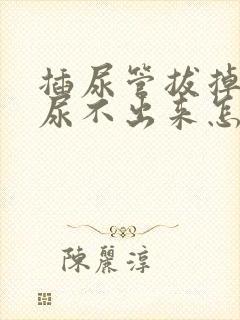 插尿管拔掉
尿不出来怎
陳麗淳